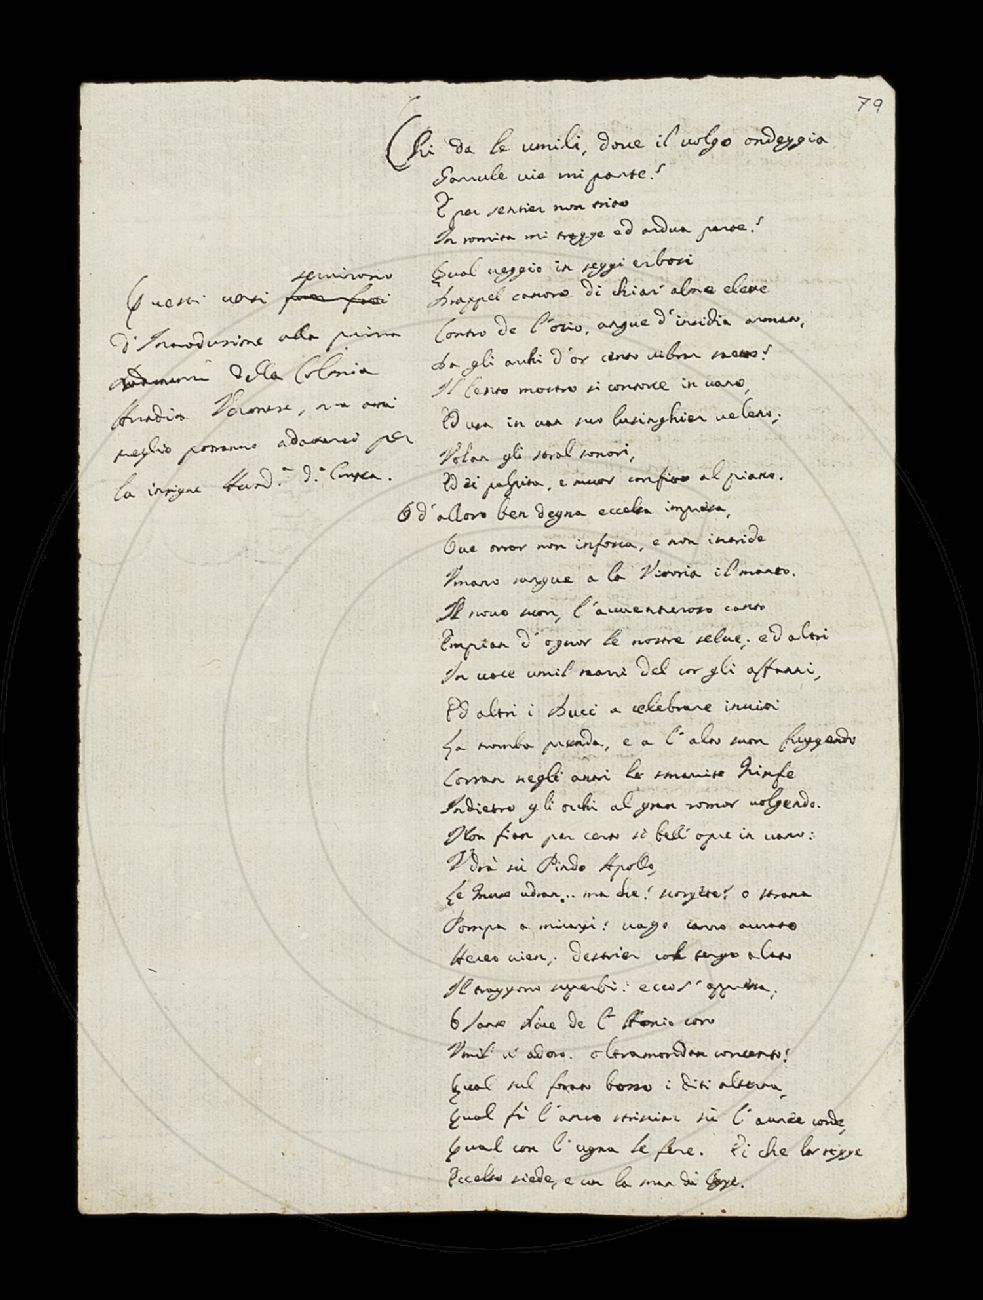 79
Chi da le umili, dove il volgo ondeggia
Garrule vie mi parte?
E per sentier non trito
In romita mi tragge ed ardua parte?
Qual veggio in seggi erbosi
Drappel canoro di chiar' alme elette
Contro de l'ozio, angue d'insidia armato,
Da gli archi d'or canto vibrar saette?
Il lento mostro si contorce in vano,
Ed usa in van suo lusinghier veleno;
Volan gli stral sonori,
Ed ei palpita, e muor confitto al piano.
O d'alloro ben degna eccelsa impresa,
Cui orror non infosca, e non intride
Umano sangue a la Vittoria il manto.
Il novo suon, l'avventuroso canto
Empian d'ognor le nostre selve; ed altri
In voce umil narri del cor gli affanni,
Ed altri i Duci a celebrare invitti
La tromba prenda, e a l'alto suon fuggendo
Corran negli antri le smarrite Ninfe
Indietro gli occhi al gran romor volgendo.
Non fian per certo sì bell'opre in vano:
Udrà sù Pindo Apollo,
Le Muse udran... ma che? scorgete? o strana
Pompa a mirarsi! vago carro aurato
Ecco vien; destrier col tergo alato
Il traggono superbi: ecco s'appressa;
O sante Dive de l'Aonio coro
Umil v'adoro. oltramondan concento!
Qual sul forato bosso i diti alterna,
Qual fà l'arco strisciar sù l'auree corde,
Qual con l'ugna le fere. Ei che lor regge
Eccelso siede, e con la man dà legge.
Questi versi servirono
d'Introduzione alla prima
della Colonia
Arcadica Veronese, ma assai
meglio potranno adattarsi per
la insigne Accad.ª d.ª